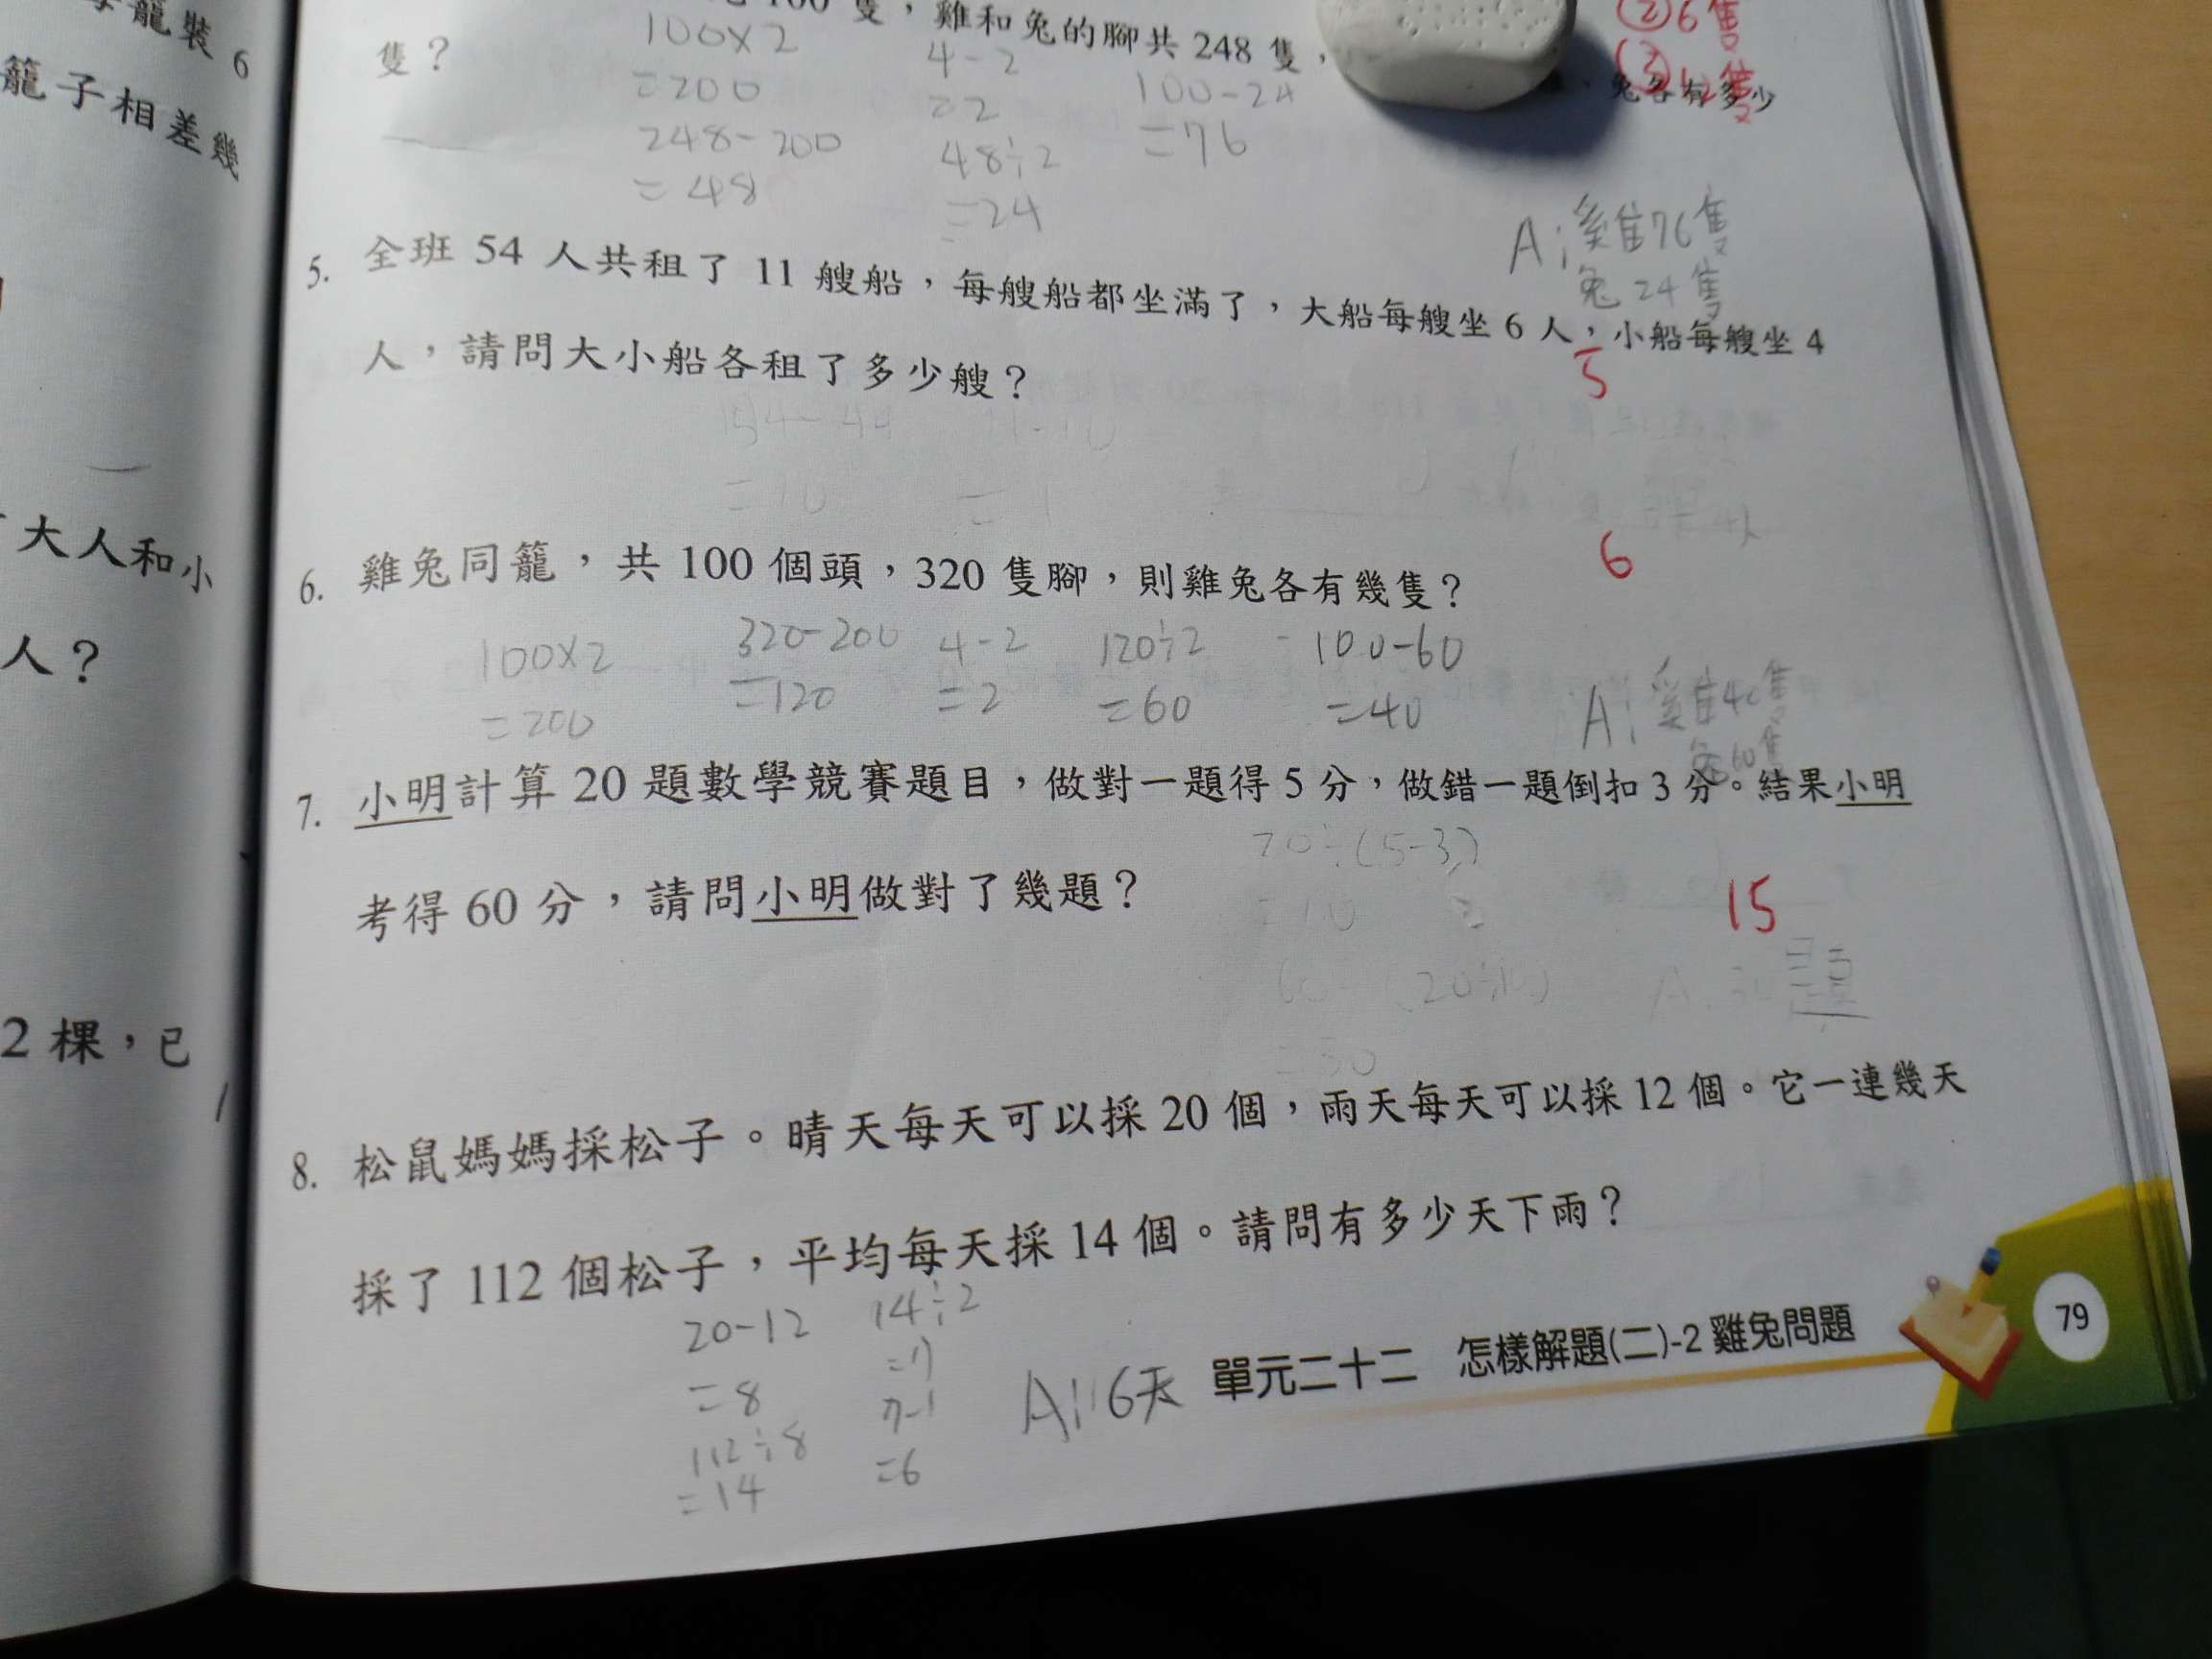 籠裝 6
籠子相差幾
大人和小
人?
2 棵,已
隻,雞和兔的腳共 248 隻,
兔各有多少
隻?
②6隻
③
100×2
=200
248-200
=48
4-2
=2
48÷2
=24
100-24
=76
A:雞76隻
兔24隻
5. 全班 54 人共租了 11 艘船,每艘船都坐滿了,大船每艘坐 6 人,小船每艘坐 4
人,請問大小船各租了多少艘?
54-44
=10
5
6
6. 雞兔同籠,共 100 個頭,320 隻腳,則雞兔各有幾隻?
100×2
=200
320-200
=120
4-2
=2
120÷2
=60
100-60
=40
A:雞40隻
兔60隻
7. 小明計算 20 題數學競賽題目,做對一題得 5 分,做錯一題倒扣 3 分。結果小明
考得 60 分,請問小明做對了幾題?
÷(5-3)
=10
15
題
8. 松鼠媽媽採松子。晴天每天可以採 20 個,雨天每天可以採 12 個。它一連幾天
採了 112 個松子,平均每天採 14 個。請問有多少天下雨?
20-12
=8
112÷8
=14
14÷2
=7
7-1
=6
A:6天
單元二十二 怎樣解題(二)-2 雞兔問題
79